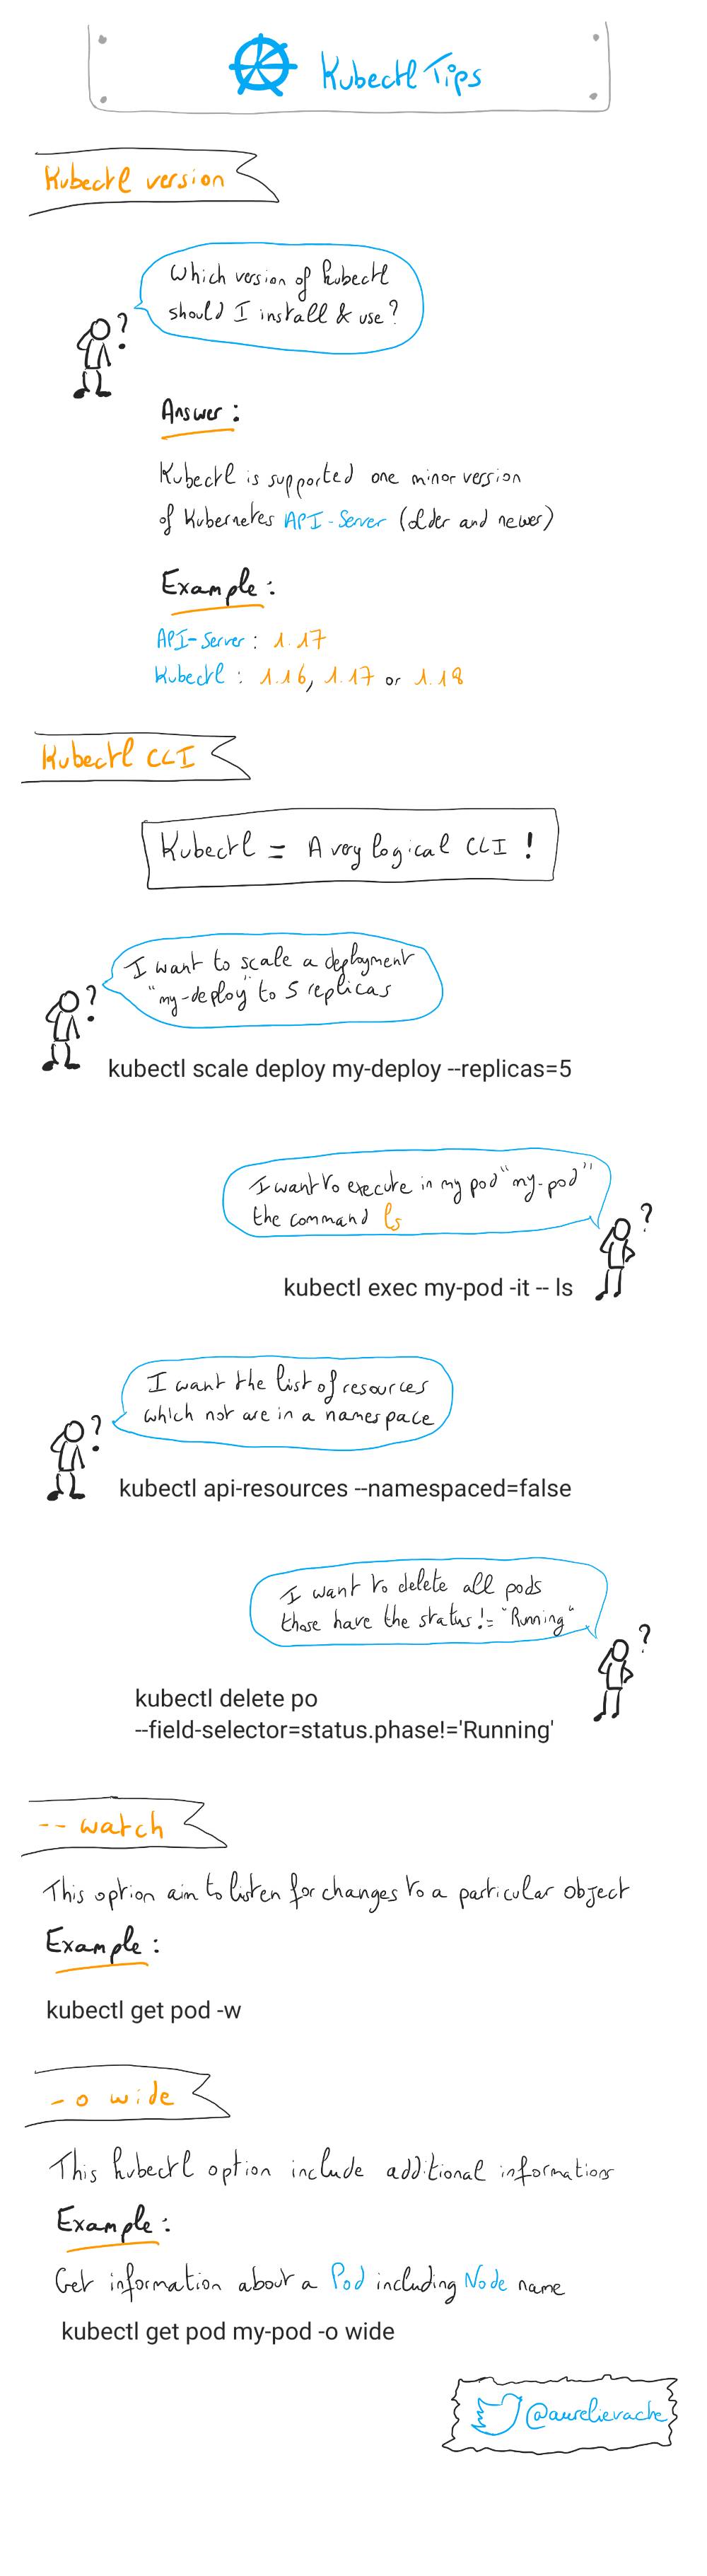 Kubectl Tips
Kubectl version
Which version of kubectl
should I install & use ?
?
Answer :
Kubectl is supported one minor version
of Kubernetes API-Server (older and newer)
Example :
API-Server : 1.17
Kubectl : 1.16, 1.17 or 1.18
Kubectl CLI
Kubectl = A very logical CLI !
I want to scale a deployment
"my-deploy" to 5 replicas
?
kubectl scale deploy my-deploy --replicas=5
I want to execute in my pod "my-pod"
the command ls
?
kubectl exec my-pod -it -- ls
I want the list of resources
which not are in a namespace
?
kubectl api-resources --namespaced=false
I want to delete all pods
those have the status != "Running"
?
kubectl delete po
--field-selector=status.phase!='Running'
-- watch
This option aim to listen for changes to a particular object
Example :
kubectl get pod -w
-o wide
This kubectl option include additional informations
Example :
Get information about a Pod including Node name
kubectl get pod my-pod -o wide
@aurelievache